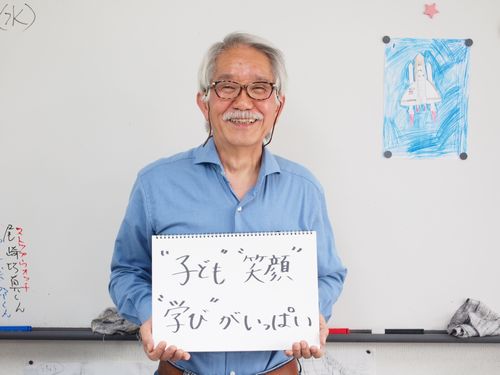 (水)
"子ども" "笑顔"
"学び" がいっぱい